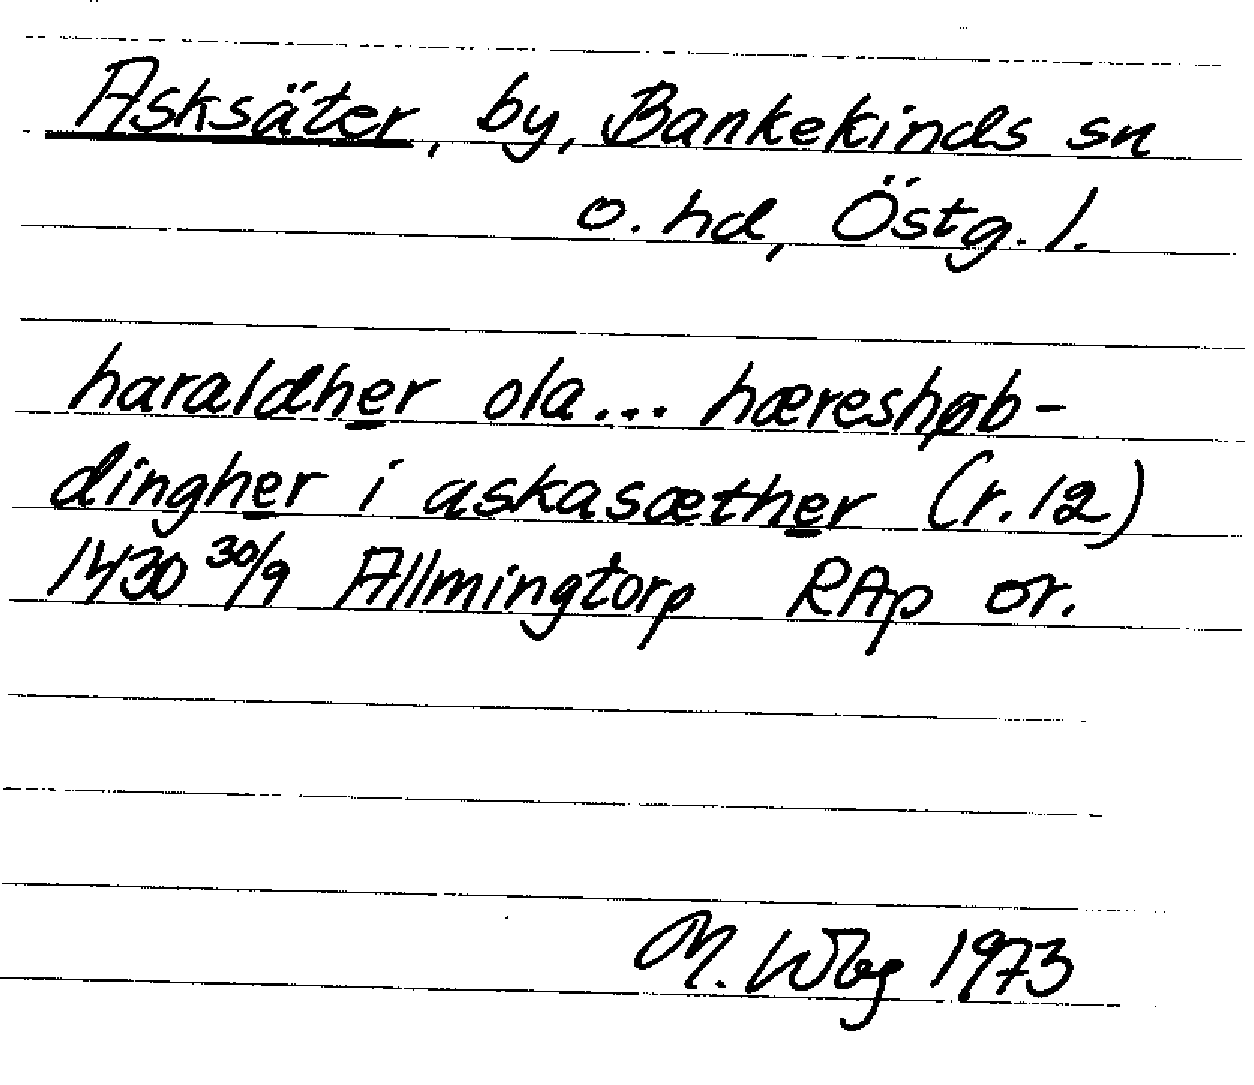 Asksäter, by, Bankekinds sn
o. hd, Östg. l.
haraldher ola... hæreshøb-
dingher i askasæther (r. 12)
1430 30/9 Allmingtorp RAp or.
M. Wbg 1973